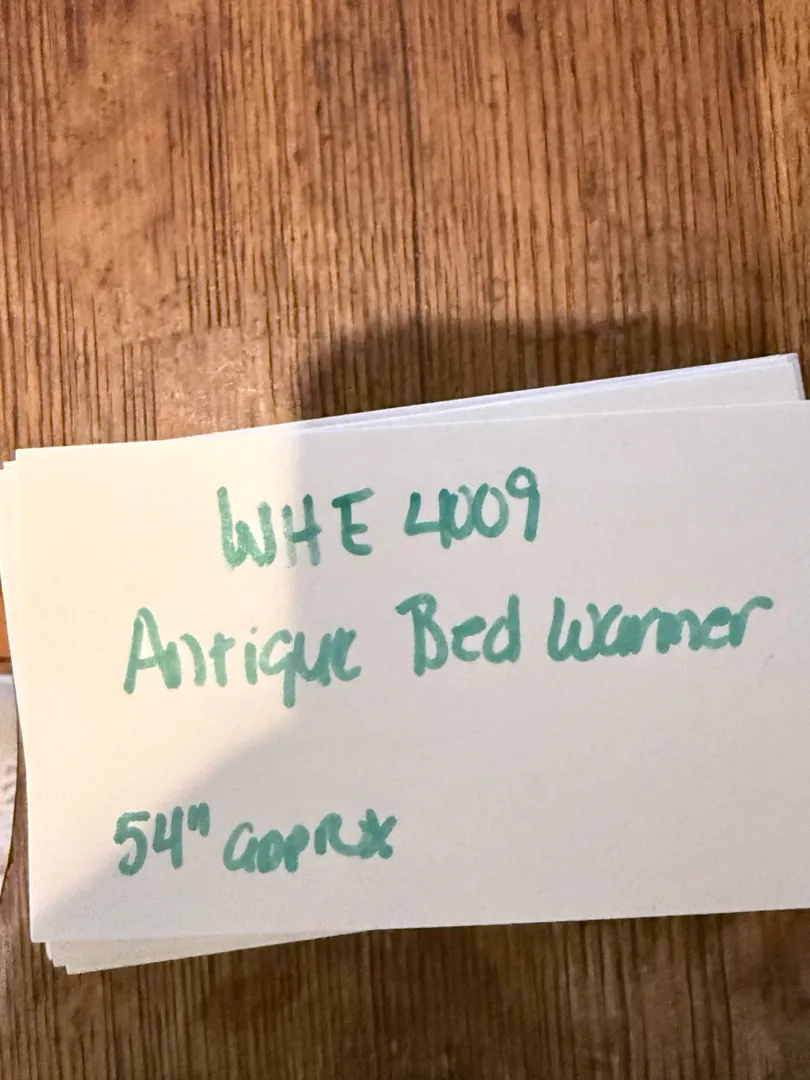 WHE 4009
Antique Bed Warmer
54" apprx